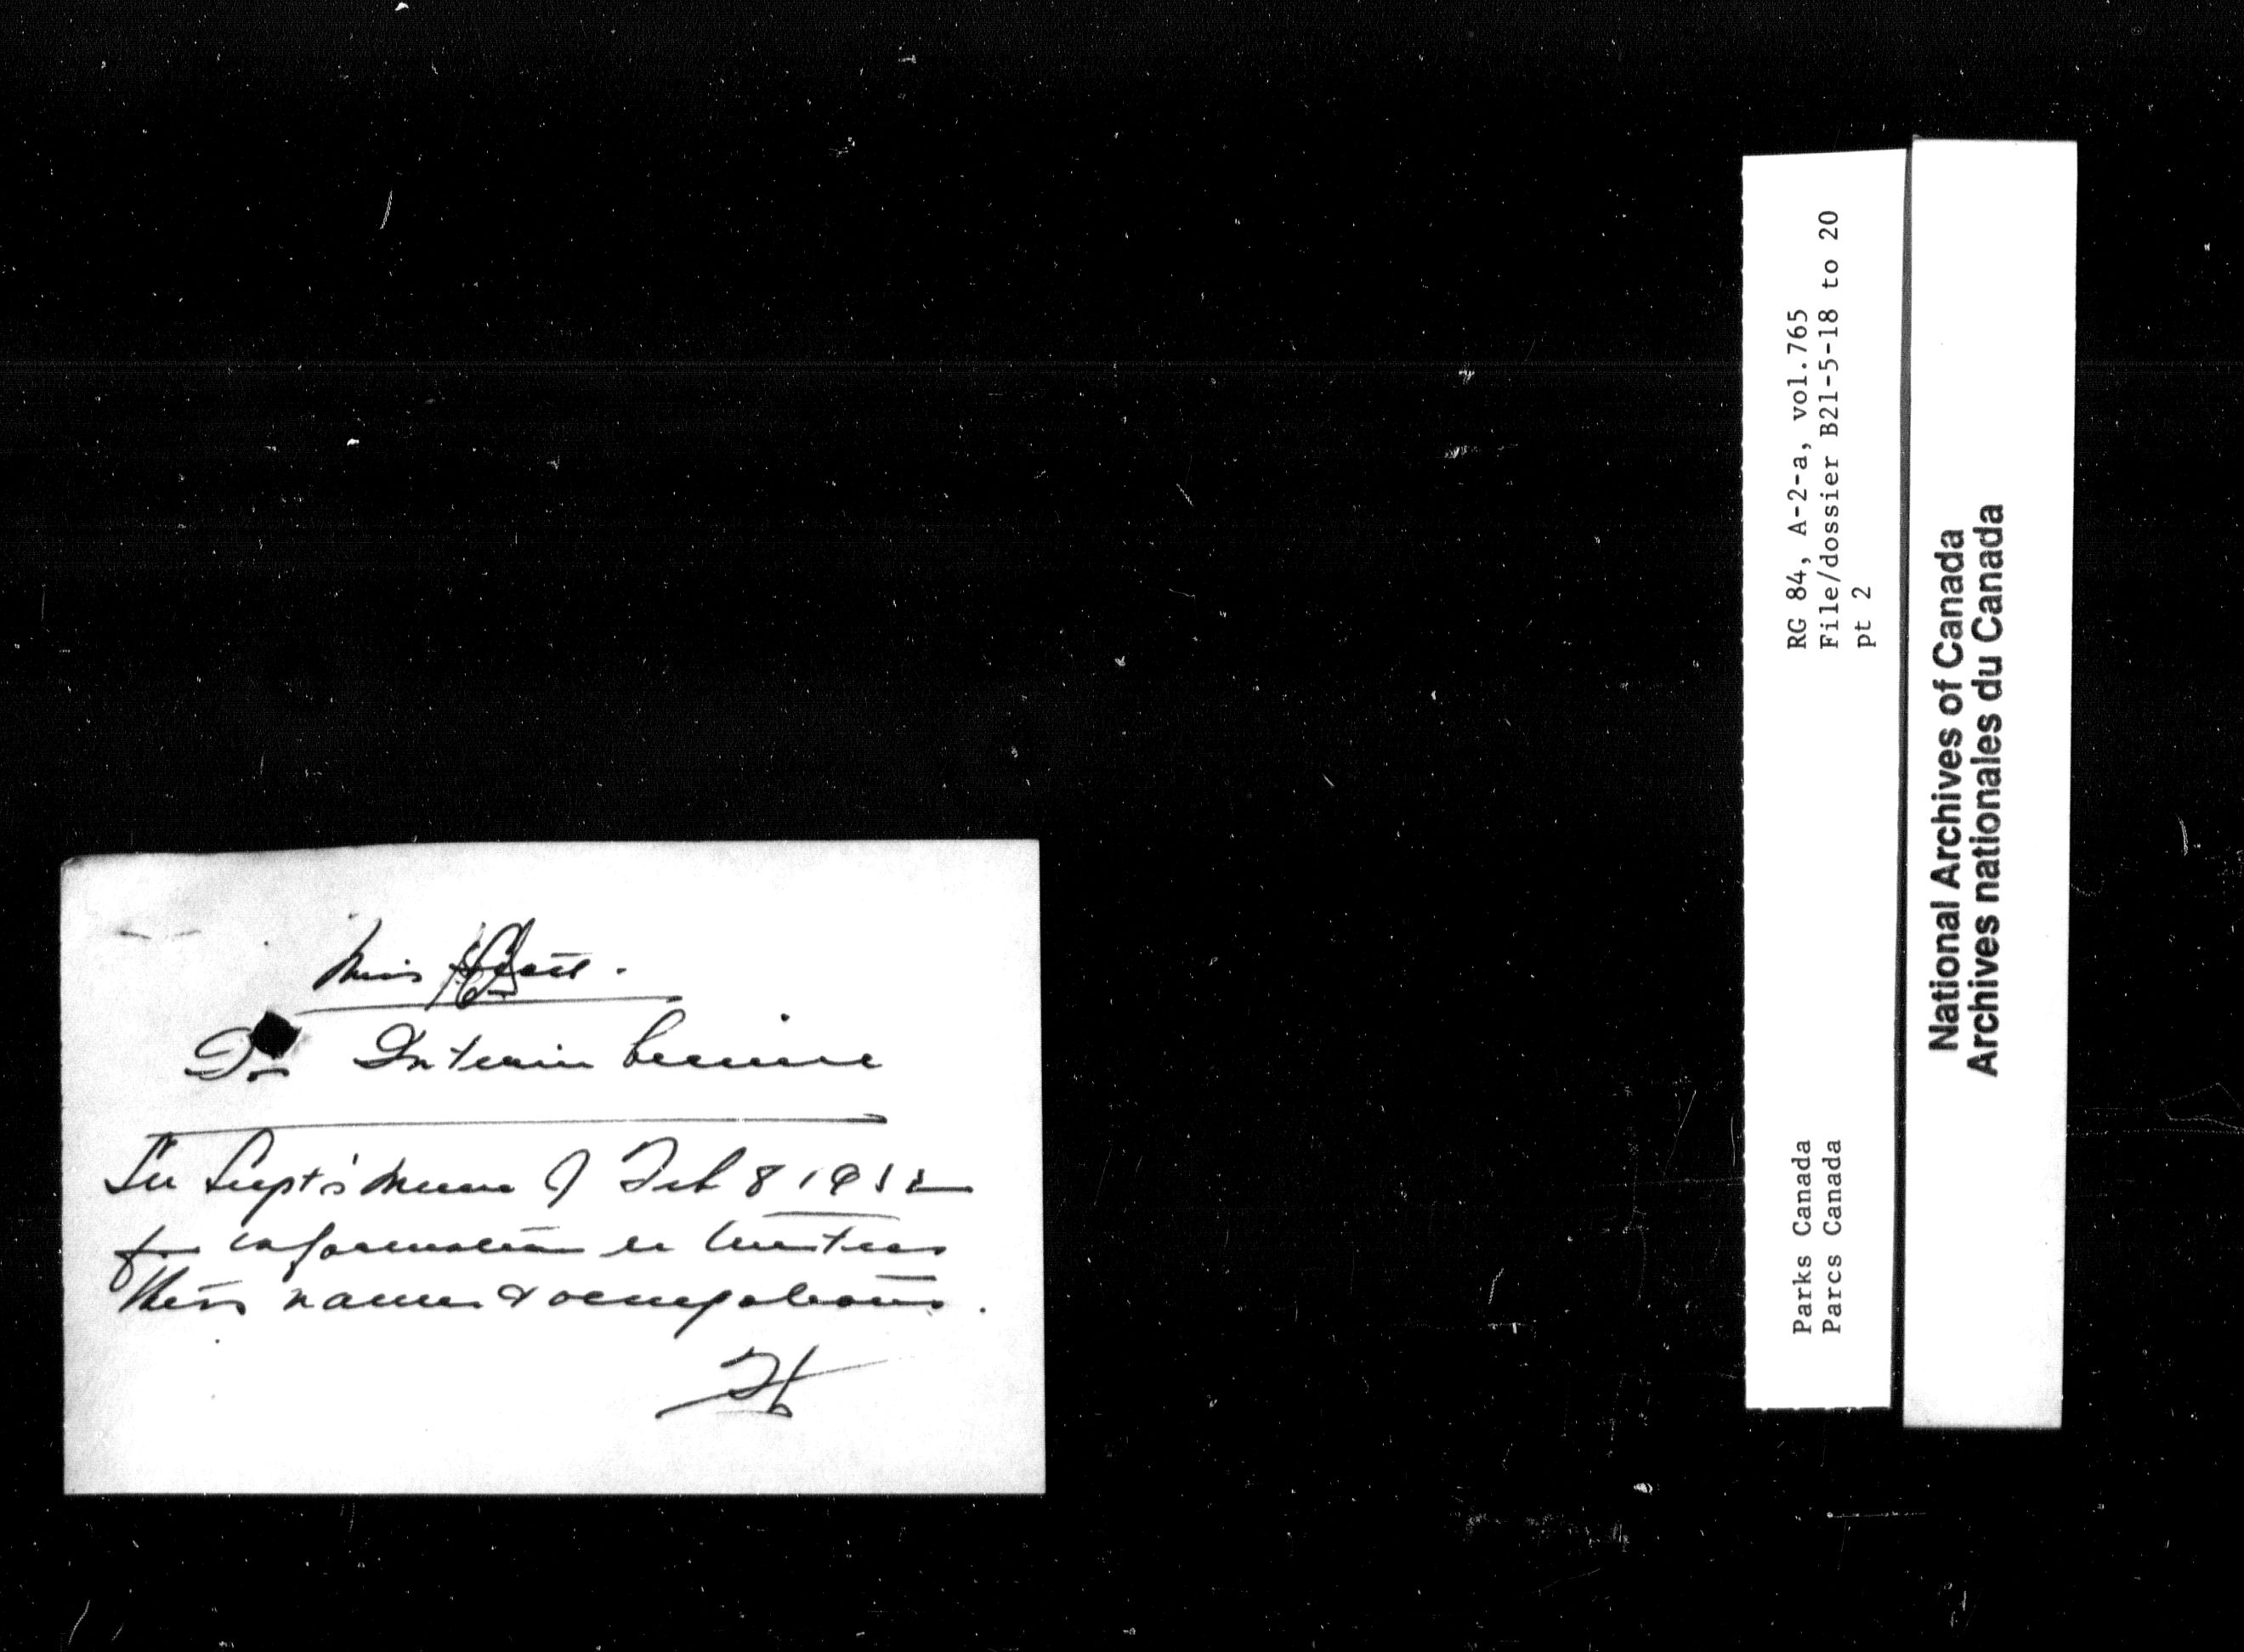 Miss
Interim licence
See Supt's memo of Feb 8 1952
for information re trustees
their names & occupations.
RG 84, A-2-a, vol.765
File/dossier B21-5-18 to 20
pt 2
Parks Canada
Parcs Canada
National Archives of Canada
Archives nationales du Canada